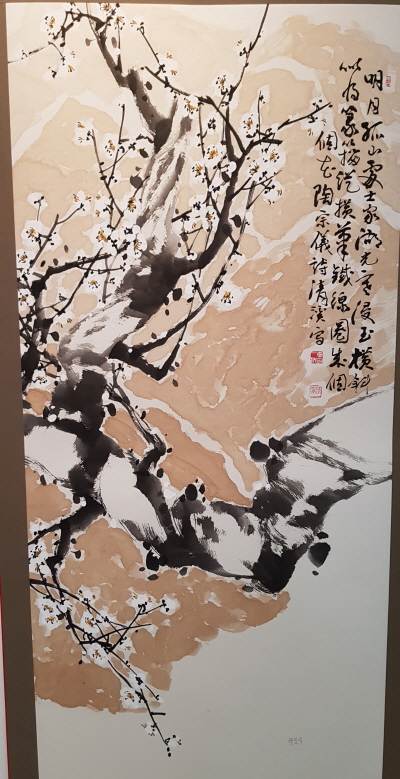 明月孤山處士家湖光寒浸玉橫斜
似將篆籀縱橫筆鐵線圈成個
個花 陶宗儀詩 清溪寫